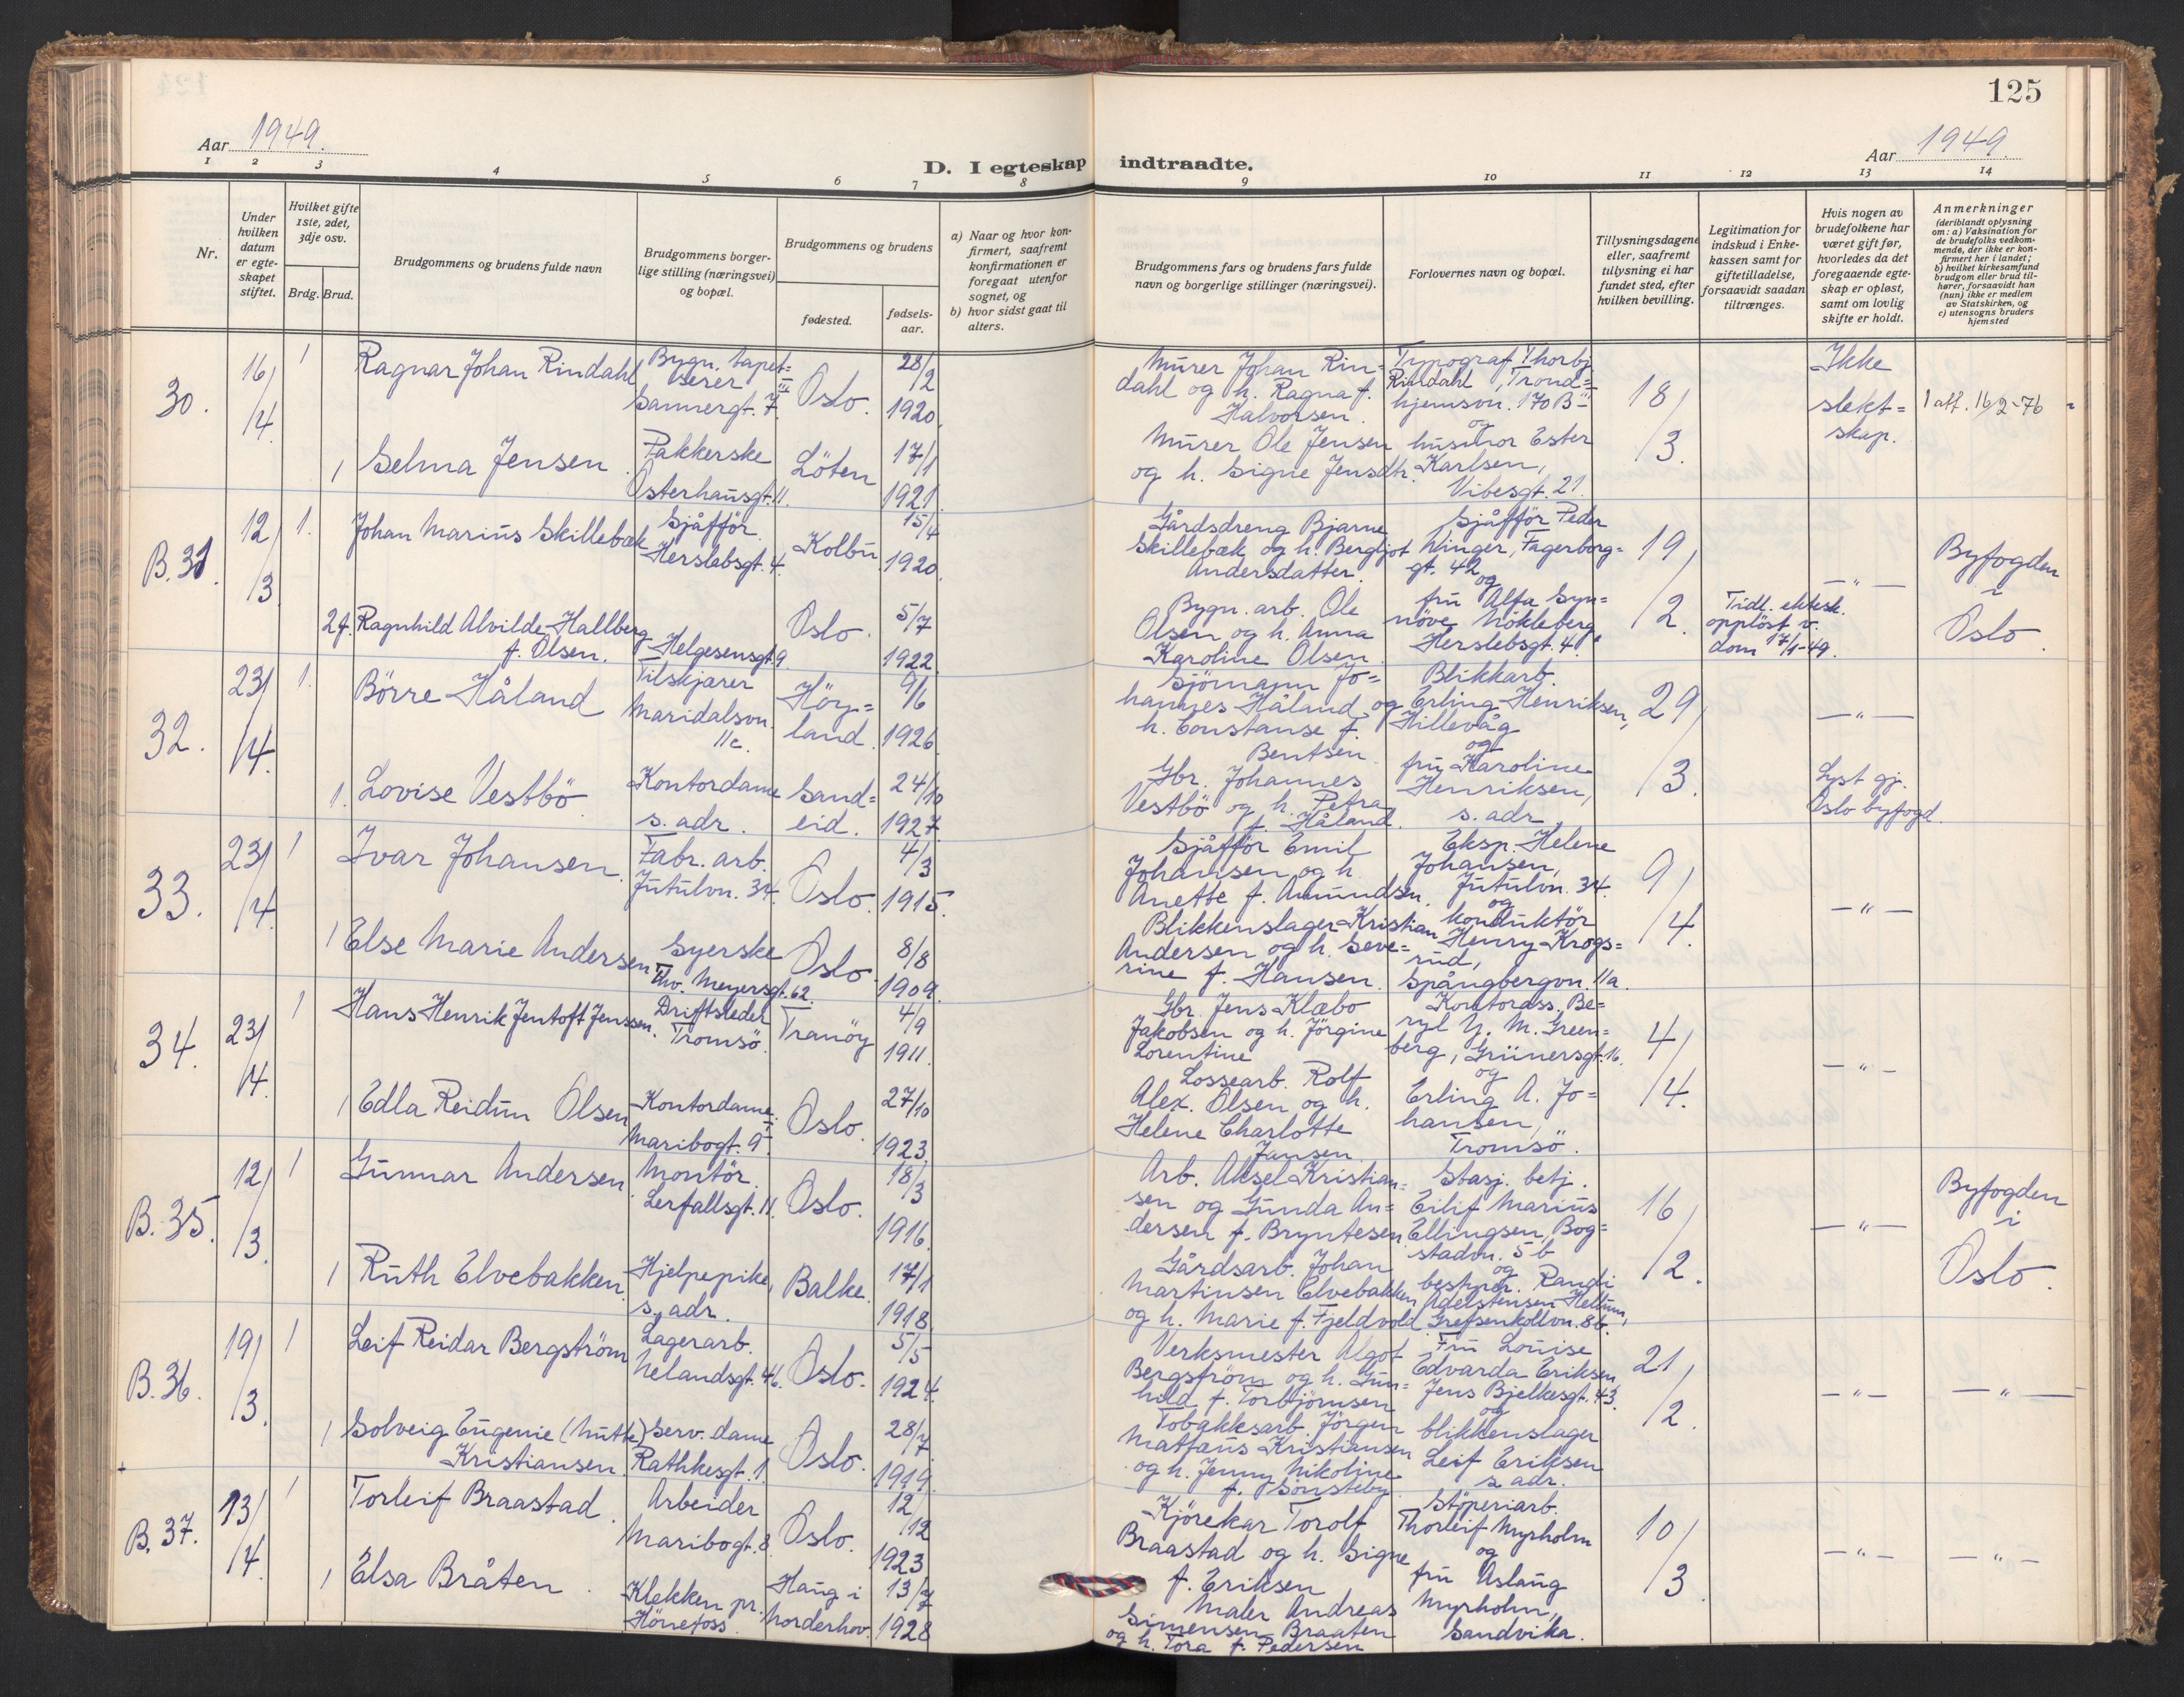 125
Aar 1949.
Aar 1949.
D. I egteskap indtraadte.
1 2 3 4 5 6 7 8 9 10 11 12 13 14
Nr.
Under hvilken datum er egteskapet stiftet.
Hvilket gifte 1ste, 2det, 3dje osv.
Brdg. Brud.
Brudgommens og brudens fulde navn
Brudgommens borgerlige stilling (næringsvei) og bopæl.
Brudgommens og brudens
fødested.
fødselsaar.
a) Naar og hvor konfirmert, saafremt konfirmationen er foregaat utenfor sognet, og
b) hvor sidst gaat til alters.
Brudgommens fars og brudens fars fulde navn og borgerlige stillinger (næringsvei).
Forlovernes navn og bopæl.
Tillysningsdagene eller, saafremt tillysning ei har fundet sted, efter hvilken bevilling.
Legitimation for indskud i Enkekassen samt for giftetilladelse, forsaavidt saadan tiltrænges.
Hvis nogen av brudefolkene har været gift før, hvorledes da det foregaaende egteskap er opløst, samt om lovlig skifte er holdt.
Anmerkninger
(deriblandt oplysning om: a) Vaksination for de brudefolks vedkommende, der ikke er konfirmert her i landet; b) hvilket kirkesamfund brudgom eller brud tilhører, forsaavidt han (hun) ikke er medlem av Statskirken, og c) utensogns bruders hjemsted
30.
16/4.
1
Ragnar Johan Rindahl
Bygn. tapet=
serer
Sannergt. 7 III
Oslo.
28/2
1920.
Murer Johan Rin=
dahl og h. Ragna f.
Halvorsen.
Typograf Thorbj.
Rindahl, Trond=
hjemsvn. 170 B III
og
18/3.
Ikke
slekt=
skap.
1 att. 16/2-76
1
Selma Jensen.
Pakkerske
Osterhausgt. 11.
Löten
17/1
1921.
Murer Ole Jensen
og h. Signe Jensdtr.
husmor Ester
Karlsen,
Vibesgt. 21.
B. 31.
12/3.
1.
Johan Marius Skillebæk
Sjåfför
Herslebsgt. 4.
Kolbu
15/4
1920.
Gårdsdreng Bjarne
Skillebæk og h. Bergljot
Andersdatter.
Sjåfför Peder
Winger, Fagerborg=
gt. 42
og
19/2.
— " —
Byfogden
i
Oslo.
2 f.
Ragnhild Alvilde Hallberg
f. Olsen.
Helgesensgt. 9.
Oslo.
5/7
1922.
Bygn. arb. Ole
Olsen og h. Anna
Karoline Olsen.
fru Alfa Syn=
növe Nökleberg
Herslebsgt. 4.
Tidl. ektesk.
opplöst v.
dom 17/1-49.
32.
23/4.
1.
Börre Håland
Filskjærer
Maridalsvn.
11c.
Höy=
land.
9/6
1926.
Sjömann Jo=
hannes Håland og
h. Constanse f.
Bentsen
Blikkarb.
Erling Henriksen,
Hillevåg
og
29/3.
— " —
1.
Lovise Vestbö
Kontordame
s. adr.
Sand=
eid.
24/10
1927.
Gbr. Johannes
Vestbö og h. Petra
f. Håland.
fru Karoline
Henriksen,
s. adr.
Lyst gj.
Oslo byfogd.
33.
23/4.
1
Ivar Johansen.
Fabr. arb.
Jutulvn. 34.
Oslo.
4/3
1915.
Sjåfför Emil
Johansen og h.
Anette f. Amundsen.
Eksp. Helene
Johansen,
Jutulvn. 34.
og
9/4.
— " —
1
Else Marie Andersen
Syerske
Thv. Meyersgt. 62.
Oslo.
8/8
1909.
Blikkenslager Kristian
Andersen og h. Seve=
rine f. Hansen.
konduktör
Henry Krogs=
rud,
Spångbergvn. 11a.
34.
23/4.
1
Hans Henrik Jentoft Jenssen.
Driftsleder
Tromsö.
Tranöy
4/9
1911.
Gbr. Jens Klæbo
Jakobsen og h. Jörgine
Lorentine
Kontorass. Be=
ryl Y. M. Green=
berg, Grünersgt. 16.
og
4/4.
— " —
1
Edla Reidun Olsen
Kontordame
Maribogt. 9 I.
Oslo.
27/10
1923.
Lossearb. Rolf
Alex. Olsen og h.
Helene Charlotte
Jansen.
Erling A. Jo=
hansen,
Tromsö.
B. 35.
12/3.
1
Gunnar Andersen.
Montör.
Lerfallsgt. 11.
Oslo.
18/3
1916.
Arb. Aksel Kristian=
sen og Gunda An=
dersen f. Bryntesen
Stasj. betj.
Eilif Marius
Ellingsen, Bog=
stadvn. 5 b
og
16/2.
— " —
Byfogden
i
Oslo.
1
Ruth Elvebakken.
Hjelpepike,
s. adr.
Balke.
17/1
1918.
Gårdsarb. Johan
Martinsen Elvebakken
og h. Marie f. Fjeldvold.
bestyrer. Randi
Adelstensen Hellum,
Grefsenkollvn. 8b.
B. 36.
19/3.
1
Leif Reidar Bergström
Lagerarb.
Uelandsgt. 46.
Oslo.
5/5
1924.
Verksmester Algot
Bergström og h. Gun=
hild f. Torbjörnsen
Fru Louise
Edvarda Eriksen,
Jens Bjelkesgt. 43.
og
21/2.
— " —
— " —
1
Solveig Eugenie (Mutte)
Kristiansen.
Serv. dame
Rathkesgt. 1.
Oslo.
28/7
1919.
Tobakksarb. Jörgen
Mattæus Kristiansen
og h. Jenny Nikoline
f. Sönsteby.
blikkenslager
Leif Eriksen
s. adr.
B. 37.
13/4.
1
Torleif Braastad.
Arbeider
Maribogt. 8.
Oslo.
12/12
1923
Kjörekar Torolf
Braastad og h. Signe
f. Eriksen
Stöperiarb.
Thorleif Myrholm
og
10/3.
— " —
— " —
1
Elsa Bråten.
Klekken pr.
Hönefoss.
Haug i
Norderhov.
13/7
1928
Maler Andreas
Simensen Braaten
og h. Tora f. Pedersen
fru Aslaug
Myrholm,
Sandvika.